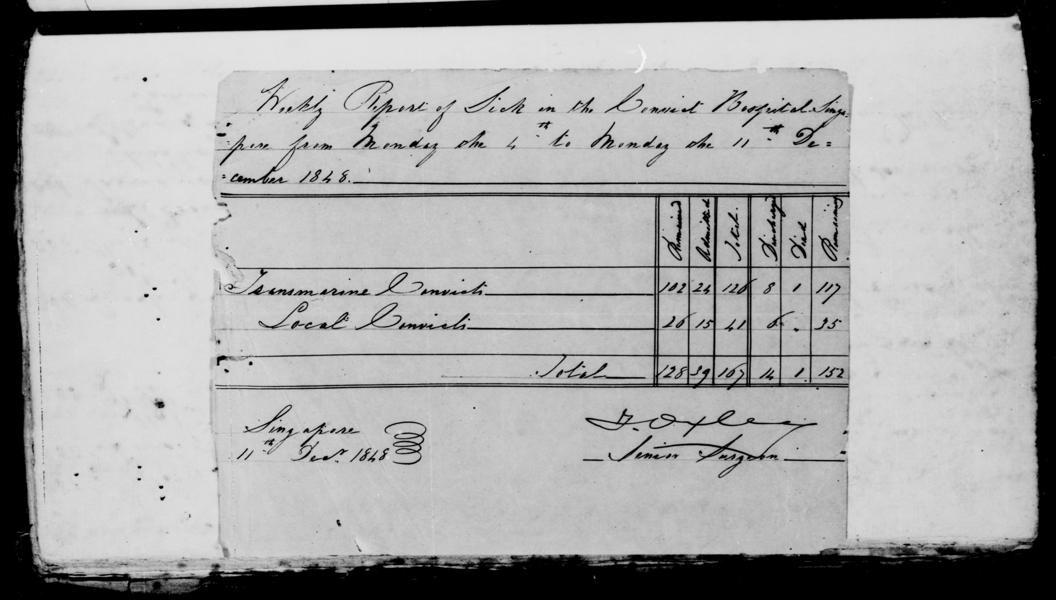 Weekly Report of Sick in the Convict Hospital Singa=
=pore from Monday the 4th to Monday the 11th De=
=cember 1848.
Remained Admitted Total Discharged Died Remaining
Transmarine Convicts 102 24 126 8 1 117
Local Convicts 26 15 41 6 . 35
Total 128 39 167 14 1 152
Singapore
11th Decr. 1848
T. Oxley
Senior Surgeon